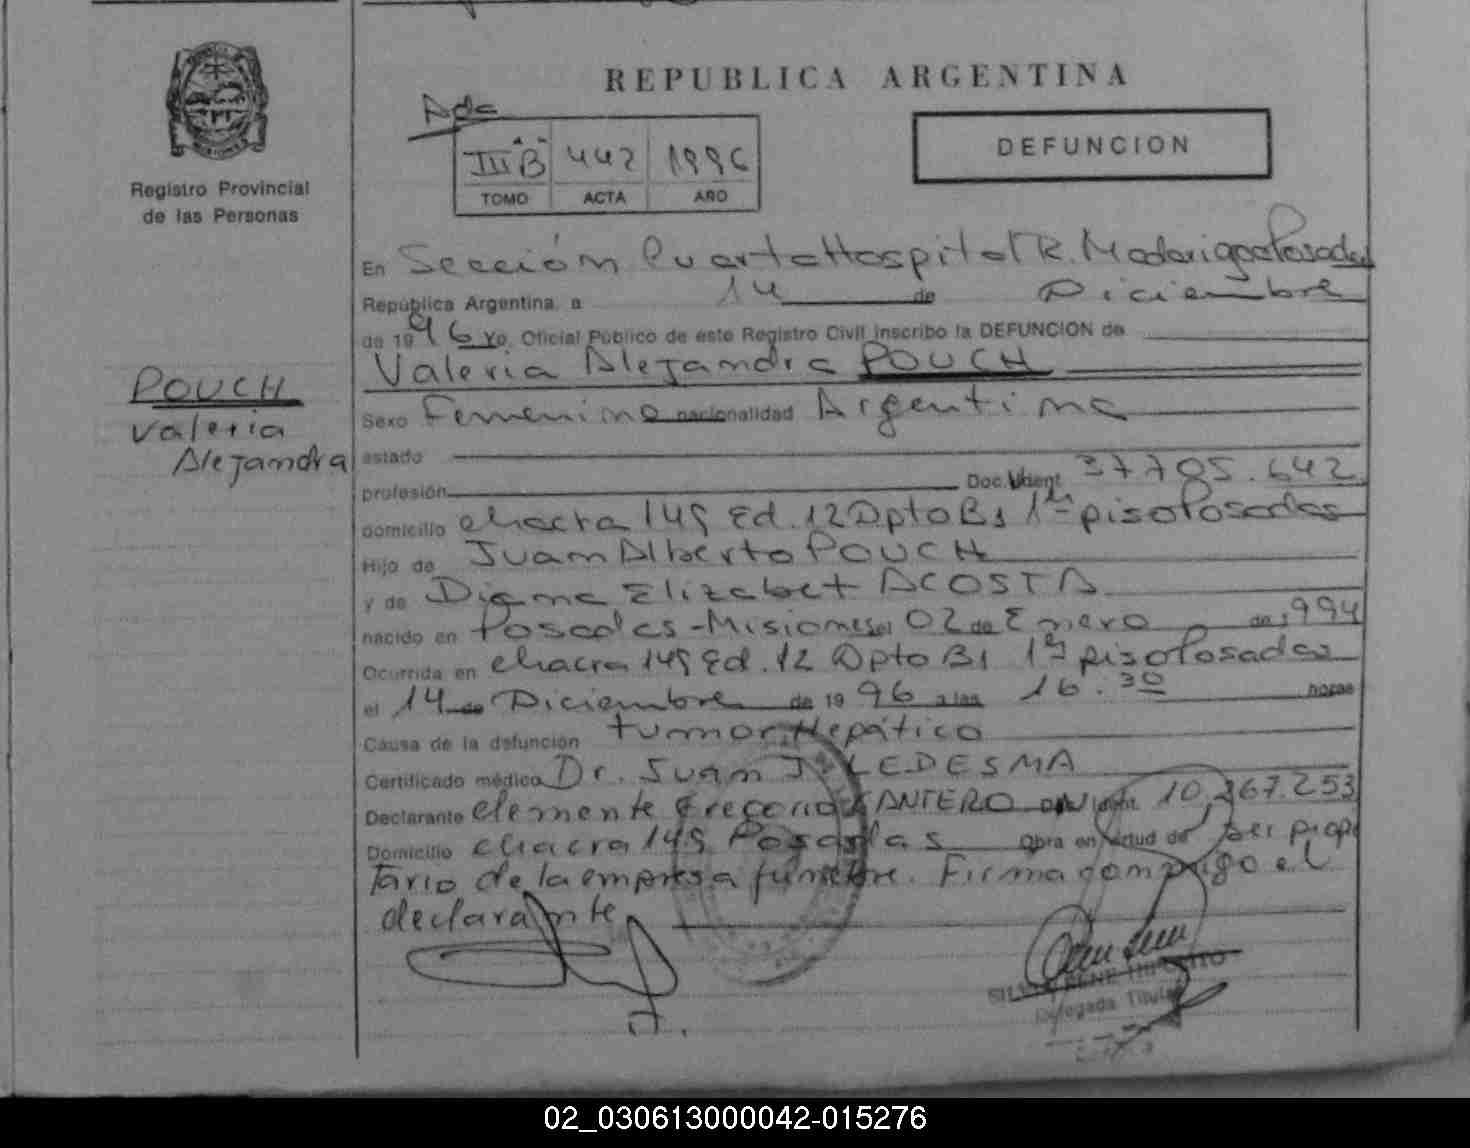 REPUBLICA ARGENTINA
Ada
III B 442 1996
TOMO ACTA AÑO
DEFUNCION
Registro Provincial
de las Personas
En Sección Cuarta Hospital R. Madariaga Posadas
República Argentina, a 14 de Diciembre
de 1996 Yo, Oficial Público de este Registro Civil inscribo la DEFUNCION de
Valeria Alejandra POUCH
POUCH
Valeria
Alejandra
Sexo Femenino nacionalidad Argentina
estado
profesión Doc. Ident. 37.785.642
domicilio chacra 149 Ed. 12 Dpto B1 1er piso Posadas
Hijo de Juan Alberto POUCH
y de Diana Elizabet ACOSTA
nacido en Posadas-Misiones el 02 de Enero de 1994
Ocurrida en chacra 149 Ed. 12 Dpto B1 1er piso Posadas
el 14 de Diciembre de 1996 a las 16.30 horas
Causa de la defunción tumor Hepático
Certificado médico Dr. Juan J. LEDESMA
Declarante Clemente Gregorio ANTERO 10.267.253
Domicilio chacra 149 Posadas Obra en virtud de ser propie
tario de la empresa funebre. Firma conmigo el
declarante
Delegada Titular
02_030613000042-015276